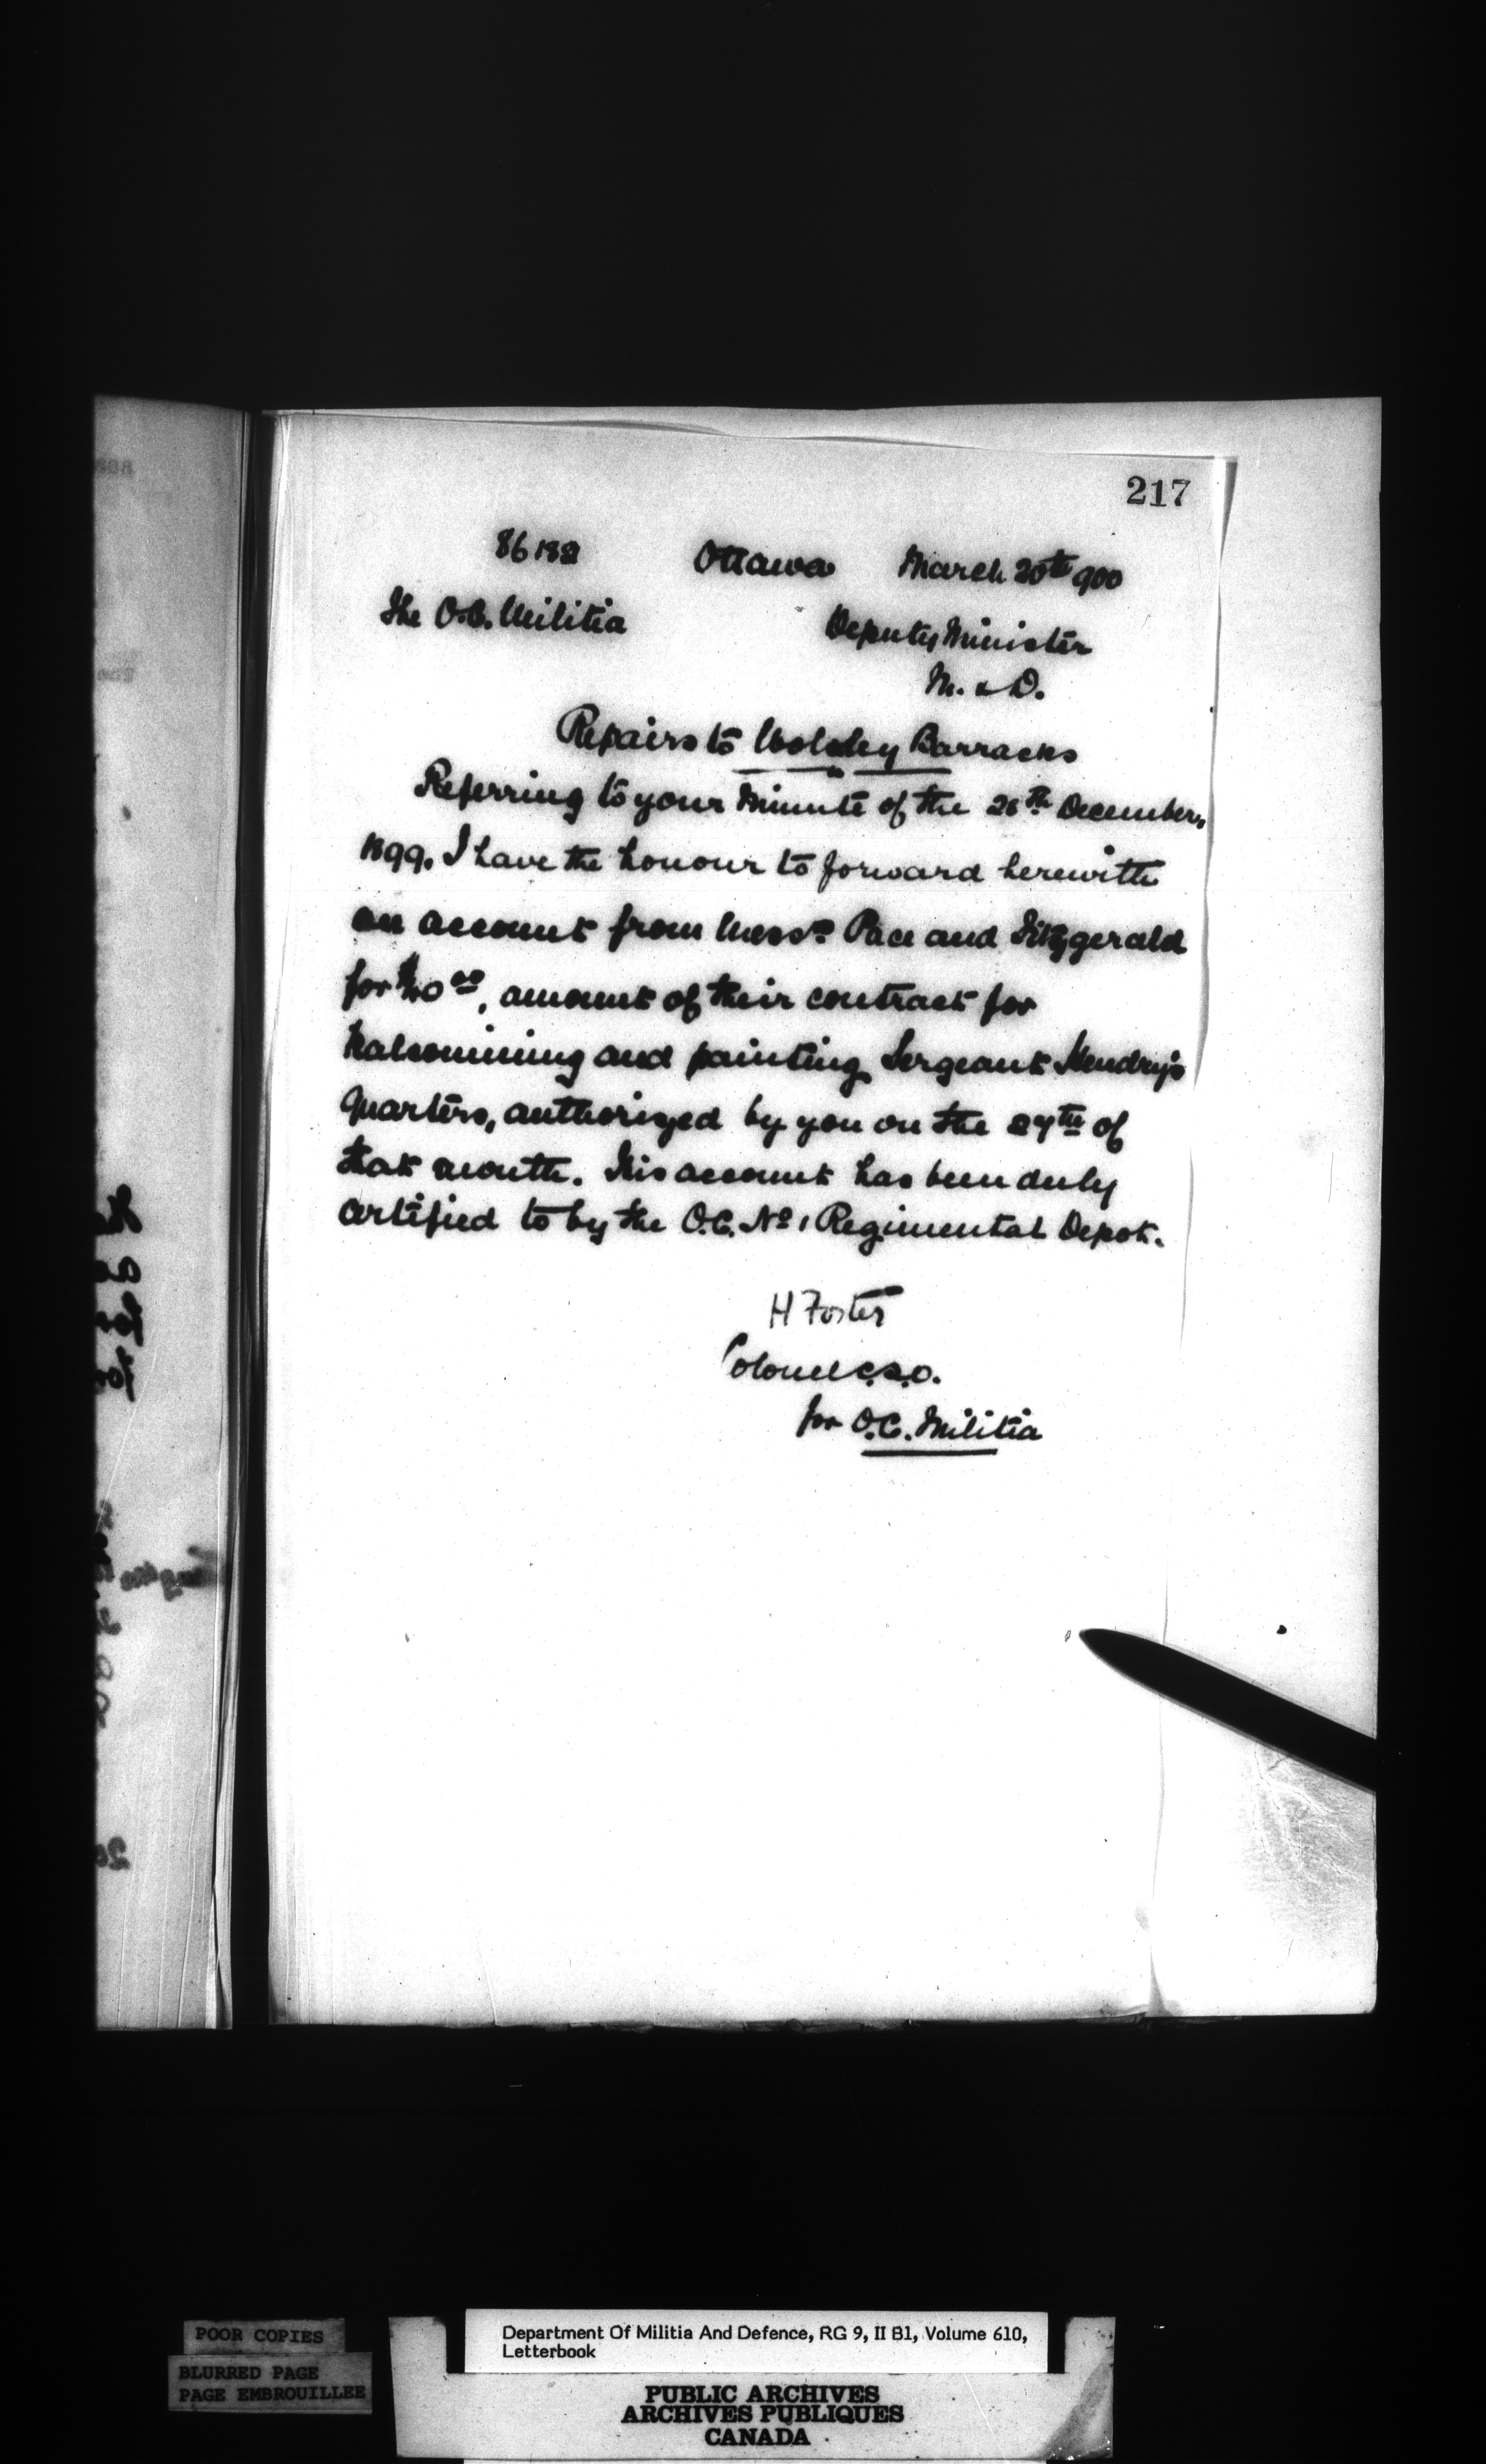 217
86188 Ottawa March 20th 900
The O.C. Militia Deputy Minister
M. & D.
Repairs to Wolseley Barracks
Referring to your Minute of the 26th December,
1899, I have the honour to forward herewith
an account from Messrs. Pace and Fitzgerald
for amount of their contract for
Kalsomining and painting Sergeant Hendry's
Quarters, authorized by you on the 27th of
that month. This account has been duly
certified to by the O.C. No 1 Regimental Depot.
H Foster
Colonel C.S.O.
for O.C. Militia
POOR COPIES
BLURRED PAGE
PAGE EMBROUILLEE
Department Of Militia And Defence, RG 9, II B1, Volume 610,
Letterbook
PUBLIC ARCHIVES
ARCHIVES PUBLIQUES
CANADA